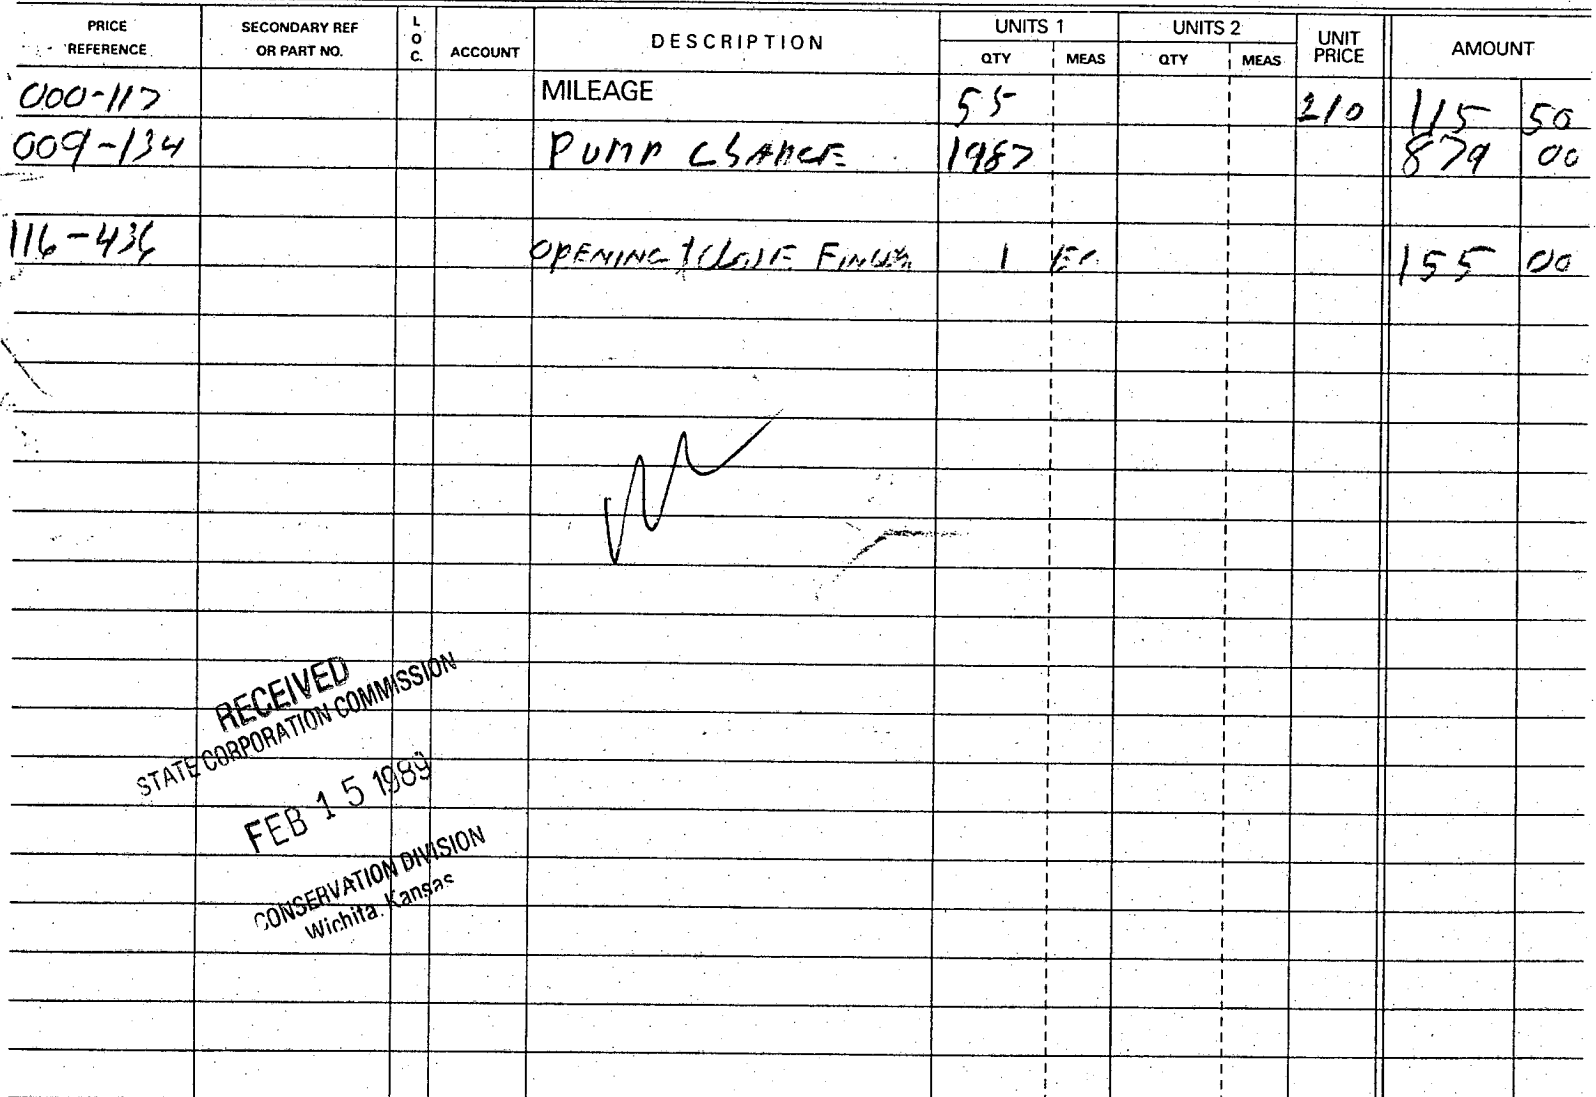 PRICE REFERENCE SECONDARY REF OR PART NO. LOC. ACCOUNT DESCRIPTION UNITS 1 QTY MEAS UNITS 2 QTY MEAS UNIT PRICE AMOUNT
000-117 MILEAGE 55 210 115 50
009-134 PUMP 1987 879 00
116-436 OPENING 1 155 00
RECEIVED
STATE CORPORATION COMMISSION
FEB 15 1989
CONSERVATION DIVISION
Wichita, Kansas